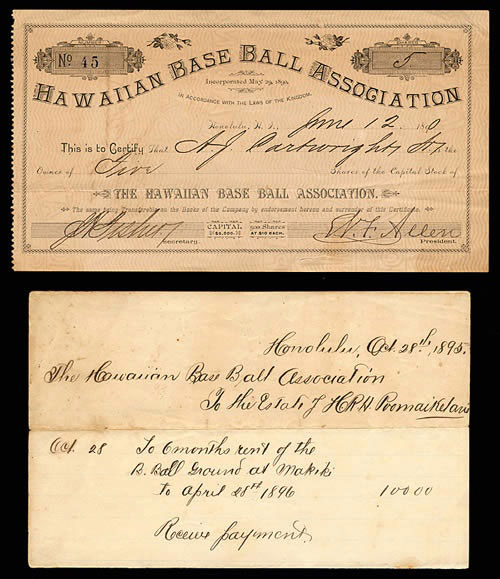 No 45
5
HAWAIIAN BASE BALL ASSOCIATION
Incorporated May 29, 1890.
IN ACCORDANCE WITH THE LAWS OF THE KINGDOM.
Honolulu, H. I., June 12 1890
This is to Certify that A.J. Cartwright Jr. the
Owner of Five Shares of the Capital Stock of
THE HAWAIIAN BASE BALL ASSOCIATION.
The same being Transferable on the Books of the Company by endorsement hereon and surrender of this Certificate.
Secretary.
CAPITAL $5,000.00
500 SHARES AT $10 EACH.
W. F. Allen
President.
Honolulu, Oct. 28th, 1895.
The Hawaiian Base Ball Association
To the Estate of H.R.H Poomaikelani
Oct 28 To 6 months rent of the
B. Ball Ground at Makiki
to April 28th 1896 100 00
Receive payment.